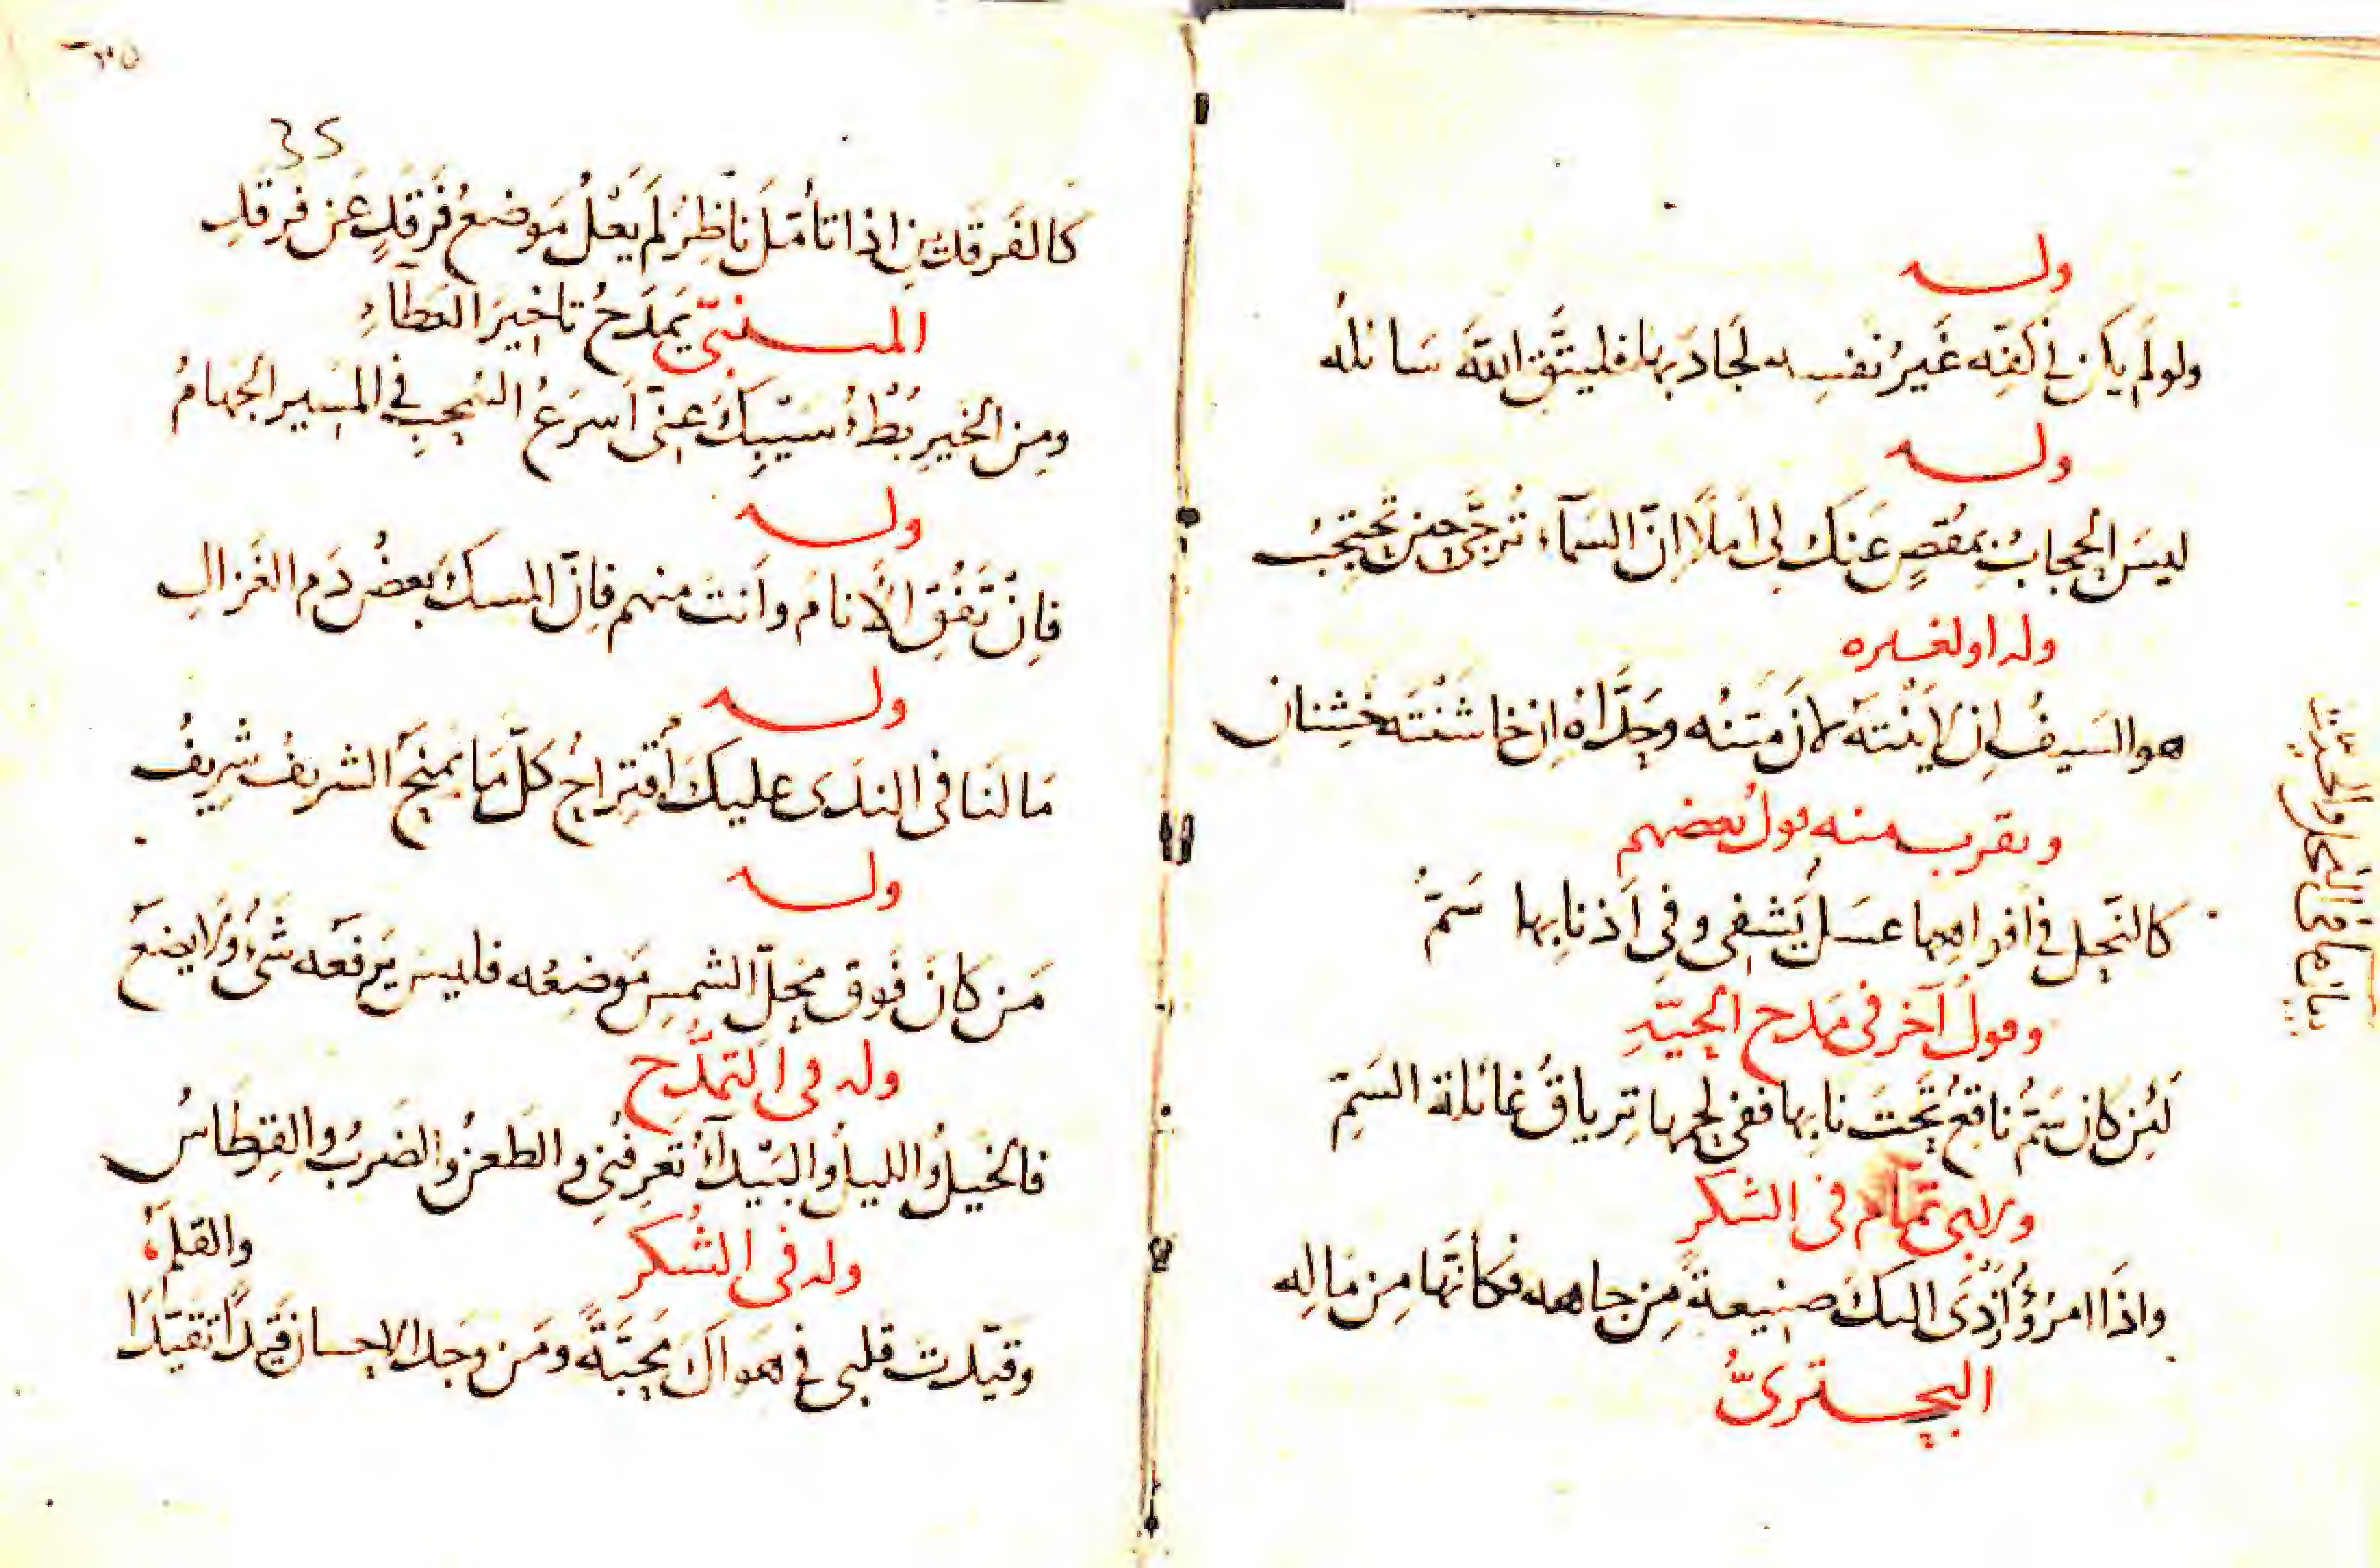 وله
ولو لَم يكن في كفّه غَيرُ نفسِه لَجَادَ بها فليتَّقِ اللّهَ سَائلُه
وله
ليسَ الحجابُ بمُقصٍ عَنكَ لي أملاً إنّ السَمآء تُرجَّى حين تَحتجبُ
وله او لغيره
هو السَيفُ إن لاينتَه لانَ مَتنُه وحَدَّاهُ إن خاشنتَه خَشِنان
ويقرب منه قول بعضهم
كالنَحل في أفواهها عسَل يَشفى وفي أذنابها سَمّ
وقول آخر في مَدح الحيّةِ
لَئِن كان سَمٌّ ناقعٌ تَحتَ نابِها ففي لحمها تِرياقُ غائلة السَمّ
ولابي تمّام في الشكر
واذَا امرُؤٌ أسدَى اليكَ صنيعةً مِن جاهه فكأنّها مِن مَاله
البحتريُّ
بيان ما في النحل والحيّة
٣٥
35
كالفَرقدَينِ اذا تأمّلَ نَاظِرٌ لَم يَعْلُ مَوضعُ فَرقَدٍ عَن فرقَدِ
المتنبّي يَمدَحُ تاخيرَ العَطآءِ
ومِن الخيرِ بُطْءُ سَيْبِكَ عنّي أسرَعُ السُحبِ في المَسيرِ الجَهامُ
وله
فإنْ تَفُقِ الأنامَ وأنتَ منهم فإنّ المسكَ بعضُ دَمِ الغَزالِ
وله
مَا لنَا في الندَى عليكَ اقتِراحٌ كلّ مَا يمنحُ الشريفُ شَرِيفُ
وله
مَن كانَ فَوق محلّ الشمسِ مَوضِعُه فليس يَرفعُه شَيءٌ ولَا يضعُ
وله في التَمَدُّحِ
فالخيلُ والليلُ والبَيدآءُ تَعرِفُني والطَعنُ والضَربُ والقِرطَاسُ
والقلَمُ
وله في الشُكر
وقيّدت قلبي في هَواكَ مَحبّةً ومَن وجَدَ الاحسانَ قَيداً تَقيّدَا